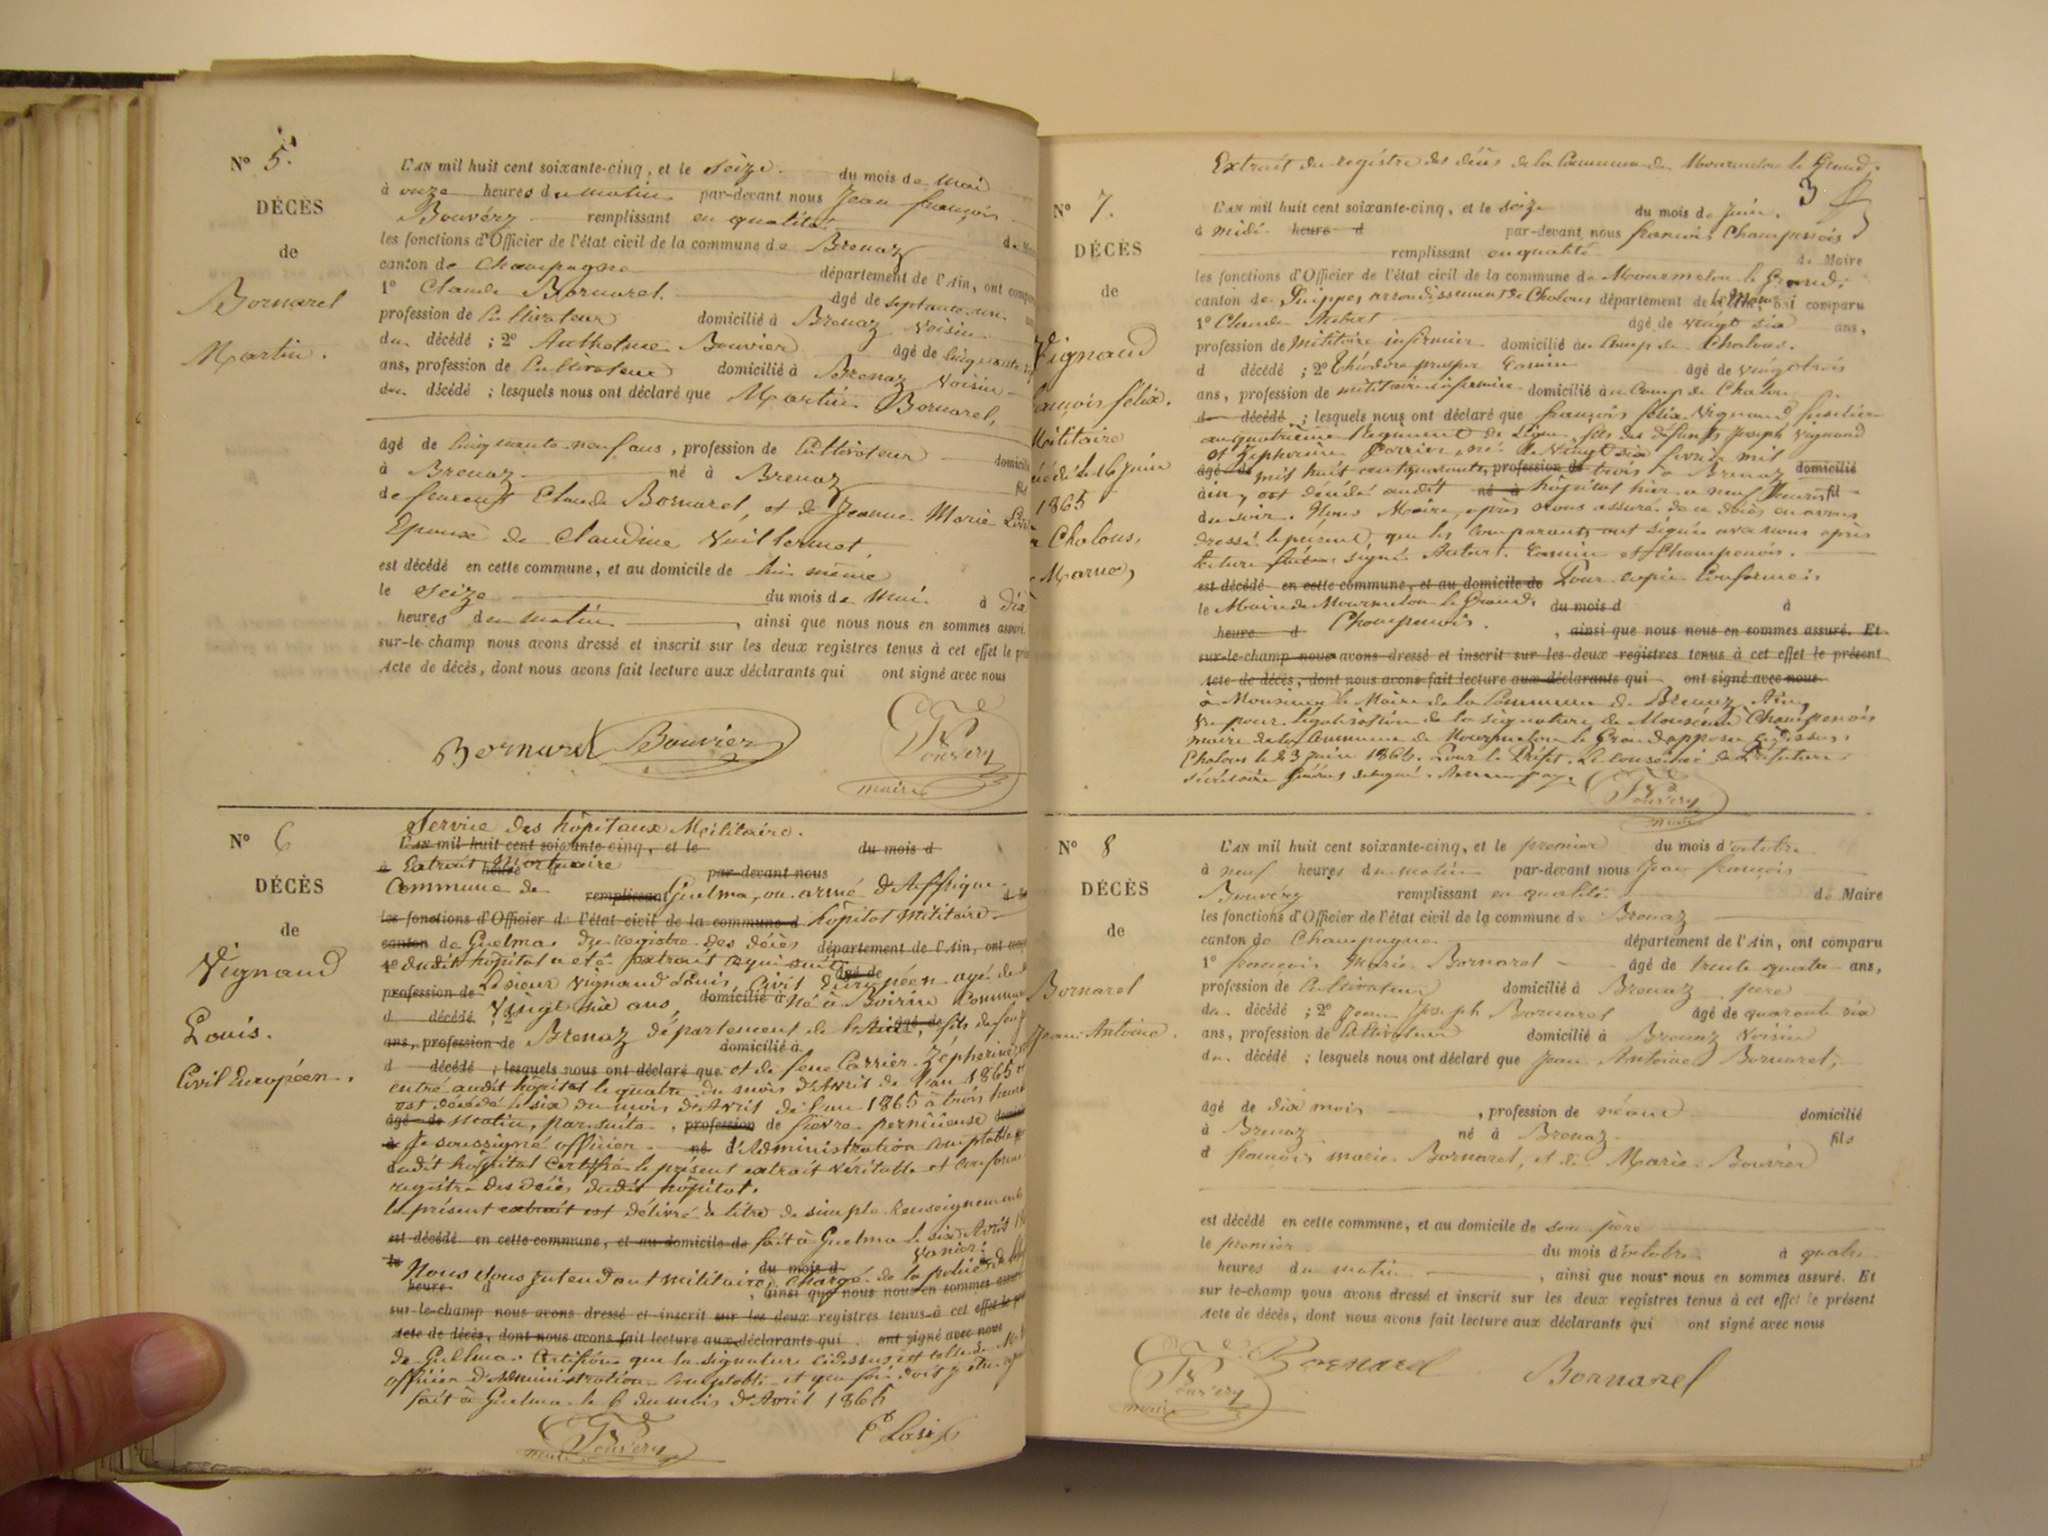 N° 5.
DÉCÈS
de
Bornarel
Martin.
L'AN mil huit cent soixante-cinq, et le Seize du mois de Mai
à onze heures du matin par-devant nous Jean françois
Bouvéry remplissant en qualité de Maire
les fonctions d'Officier de l'état civil de la commune de Brenaz
canton de Champagne département de l'Ain, ont comparu
1° Claude Bornarel. âgé de septante un
profession de Cultivateur domicilié à Brenaz Voisin
du décédé ; 2° Anthelme Bouvier âgé de Cinquante
ans, profession de Cultivateur domicilié à Brenaz Voisin
du décédé ; lesquels nous ont déclaré que Martin Bornarel,
âgé de Cinquante neuf ans, profession de Cultivateur domicilié
à Brenaz né à Brenaz fils
de Claude Bornarel, et de Jeanne Marie
Epoux de Claudine Vuillermet,
est décédé en cette commune, et au domicile de lui même
le Seize du mois de Mai à dix
heures du matin, ainsi que nous nous en sommes assuré.
sur-le-champ nous avons dressé et inscrit sur les deux registres tenus à cet effet le
Acte de décès, dont nous avons fait lecture aux déclarants qui ont signé avec nous
Bornarel Bouvier Bouvéry
maire
N° 6
DÉCÈS
de
Vignaud
Louis.
Civil Européen.
Service des hôpitaux Militaire.
L'AN mil huit cent soixante-cinq, et le du mois d
à Extrait mortuaire heure par-devant nous
Commune de remplissant Guelma, ou armé d'Affrique
les fonctions d'Officier de l'état civil de la commune d hôpital militaire
canton de Guelma. Du registre des décès département de l'Ain, ont
1° dudit hôpital a été extrait ce qui suit âgé de
profession de Le sieur Vignaud Louis, Civil Européen agé de
d décédé ; 2° Vingt six ans domicilié à né à Commune
ans, profession de Brenaz département de l'Ain, âgé de fils de feu
domicilié à
d décédé ; lesquels nous ont déclaré que et de feue Carrier Zépherine,
entré audit hôpital le quatre du mois d'Avril de l'an 1865
est décédé le six du mois d'Avril de l'an 1865 à trois heure
âgé de matin, par suite, profession de fièvre pernicieuse
à Je soussigné officier né d'Administration comptable
dudit hôpital certifie le présent extrait véritable et conforme
registre des décès dudit hôpital.
le présent extrait est délivré à titre de simple Renseignement
est décédé en cette commune, et au domicile de fait à Guelma le six Avril
le
Nous Sous intendant militaire, du mois d chargé de la police
heure d , ainsi que nous nous en sommes assuré
sur-le-champ nous avons dressé et inscrit sur les deux registres tenus à cet effet le
Acte de décès, dont nous avons fait lecture aux déclarants qui ont signé avec nous
de Guelma. Certifions que la signature ci dessus est celle de
officier d'Administration comptable et que foi doit y être
fait à Guelma le 6 du mois d'Avril 1865
Bouvéry
maire
Extrait du registre des décès de la Commune de Mourmelon le Grand.
3
N° 7.
DÉCÈS
de
Vignaud
françois félix.
Militaire
décédé le 15 juin
1865
a Chalons,
Marne,
L'AN mil huit cent soixante-cinq, et le seize du mois de Juin.
à midi heure d par-devant nous françois Champenois
remplissant en qualité de Maire
les fonctions d'Officier de l'état civil de la commune de Mourmelon le Grand,
canton de Suippes arrondissement de Chalons département de la Marne comparu
1° Claude Aubert âgé de vingt six ans,
profession de Militaire infirmier domicilié au Camp de Chalons.
d décédé ; 2° Théodore prosper âgé de vingt trois
ans, profession de militaire infirmier domicilié au Camp de Chalon
d décédé ; lesquels nous ont déclaré que françois félix Vignaud fusilier
au quatrième Régiment de Ligne, fils des défunts Joseph Vignaud
et Zépherine Carrier, né le Vingt six février mil
âgé de mil huit cent quarante, profession de trois a Brenaz domicilié
ain, est décédé audit né à hôpital hier a neuf heures fil
du soir. Nous Maire, après nous assuré de ce décès en avons
dressé le présent, que les Comparants ont signé avec nous après
lecture signé Aubert. et Champenois.
est décédé en cette commune, et au domicile de Pour copie Conforme
le Maire de Mourmelon le Grand. du mois d à
heure d Champenois. , ainsi que nous nous en sommes assuré. Et
sur-le-champ nous avons dressé et inscrit sur les deux registres tenus à cet effet le présent
Acte de décès, dont nous avons fait lecture aux déclarants qui ont signé avec nous
à Monsieur le Maire de la Commune de Brenaz Ain,
Vu pour légalisation de la signature de Monsieur Champenois
maire de la Commune de Mourmelon le Grand apposée ci dessus,
Chalons le 23 juin 1865. Pour le Préfet. Le conseiller de Préfecture
Secrétaire Général délégué.
Bouvéry
Maire
N° 8
DÉCÈS
de
Bornarel
Jean Antoine.
L'AN mil huit cent soixante-cinq, et le premier du mois d'octobre
à neuf heures du matin par-devant nous Jean françois
Bouvéry remplissant en qualité de Maire
les fonctions d'Officier de l'état civil de la commune de Brenaz
canton de Champagne département de l'Ain, ont comparu
1° françois Marie Bornarel âgé de trente quatre ans,
profession de Cultivateur domicilié à Brenaz père
du décédé ; 2° Jean Joseph Bornarel âgé de quarante six
ans, profession de Cultivateur domicilié à Brenaz Voisin
du décédé ; lesquels nous ont déclaré que Jean Antoine Bornarel,
âgé de dix mois, profession de néant domicilié
à Brenaz né à Brenaz fils
d françois marie Bornarel, et de Marie Bouvier
est décédé en cette commune, et au domicile de son père
le premier du mois d'octobre à quatre
heures du matin, ainsi que nous nous en sommes assuré. Et
sur-le-champ nous avons dressé et inscrit sur les deux registres tenus à cet effet le présent
Acte de décès, dont nous avons fait lecture aux déclarants qui ont signé avec nous
Bouvéry Bornarel Bornarel
maire